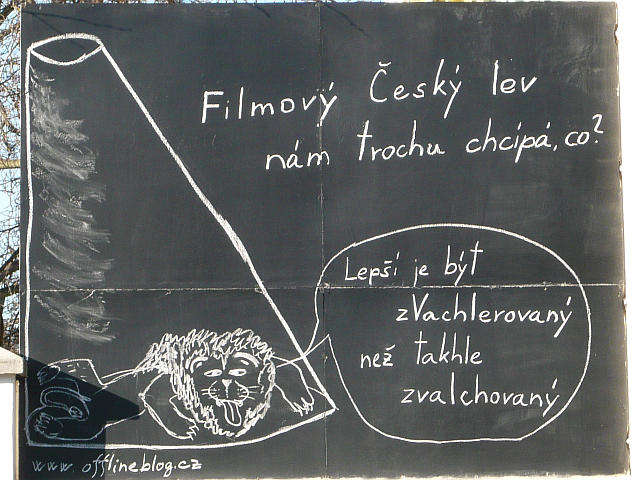 Filmový Český lev
nám trochu chcípá, co?
Lepší je být
zVachlerovaný
než takhle
zvalchovaný
www.offlineblog.cz